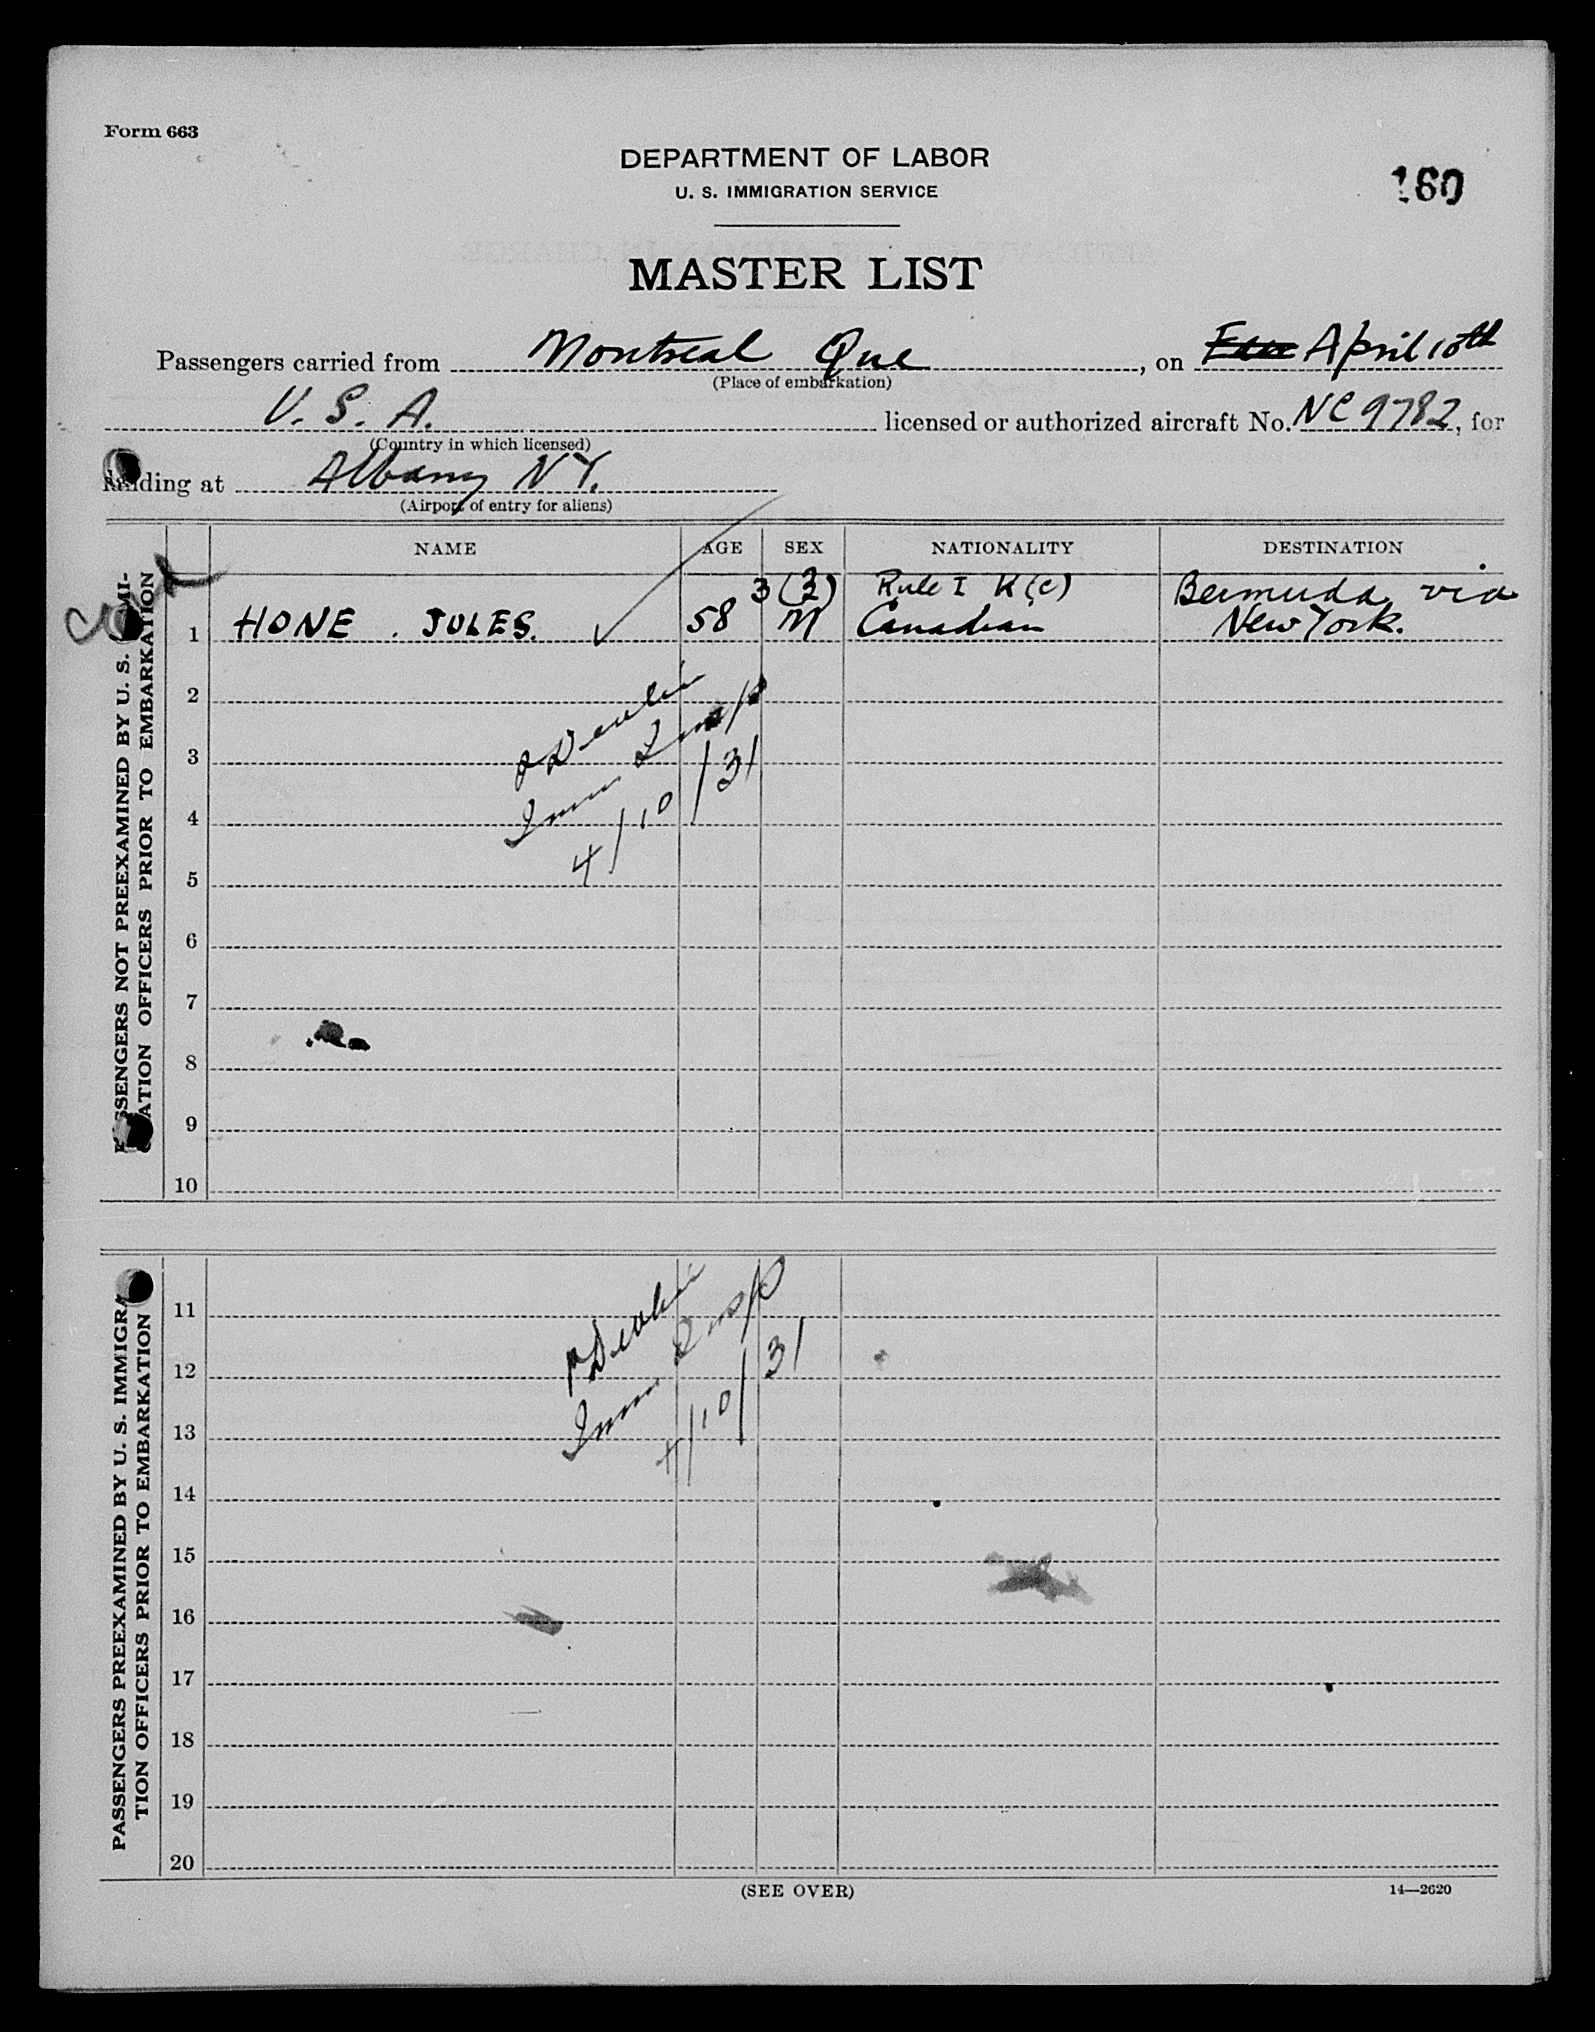 Form 663
DEPARTMENT OF LABOR
U. S. IMMIGRATION SERVICE
160
MASTER LIST
Passengers carried from Montreal Que, on April 10th
(Place of embarkation)
U. S. A. licensed or authorized aircraft No. NC 9782, for
(Country in which licensed)
landing at Albany NY.
(Airport of entry for aliens)
NAME AGE SEX NATIONALITY DESTINATION
3 (3) Rule I K(c) Bermuda via
1 HONE . JULES. 58 M Canadian New York.
2
3
4
5
6
7
8
9
10
Imm Insp
4/10/31
PASSENGERS NOT PREEXAMINED BY U. S. IMMI-
GRATION OFFICERS PRIOR TO EMBARKATION
11
12
13
14
15
16
17
18
19
20
Imm Insp
4/10/31
PASSENGERS PREEXAMINED BY U. S. IMMIGRA-
TION OFFICERS PRIOR TO EMBARKATION
(SEE OVER)
14—2620